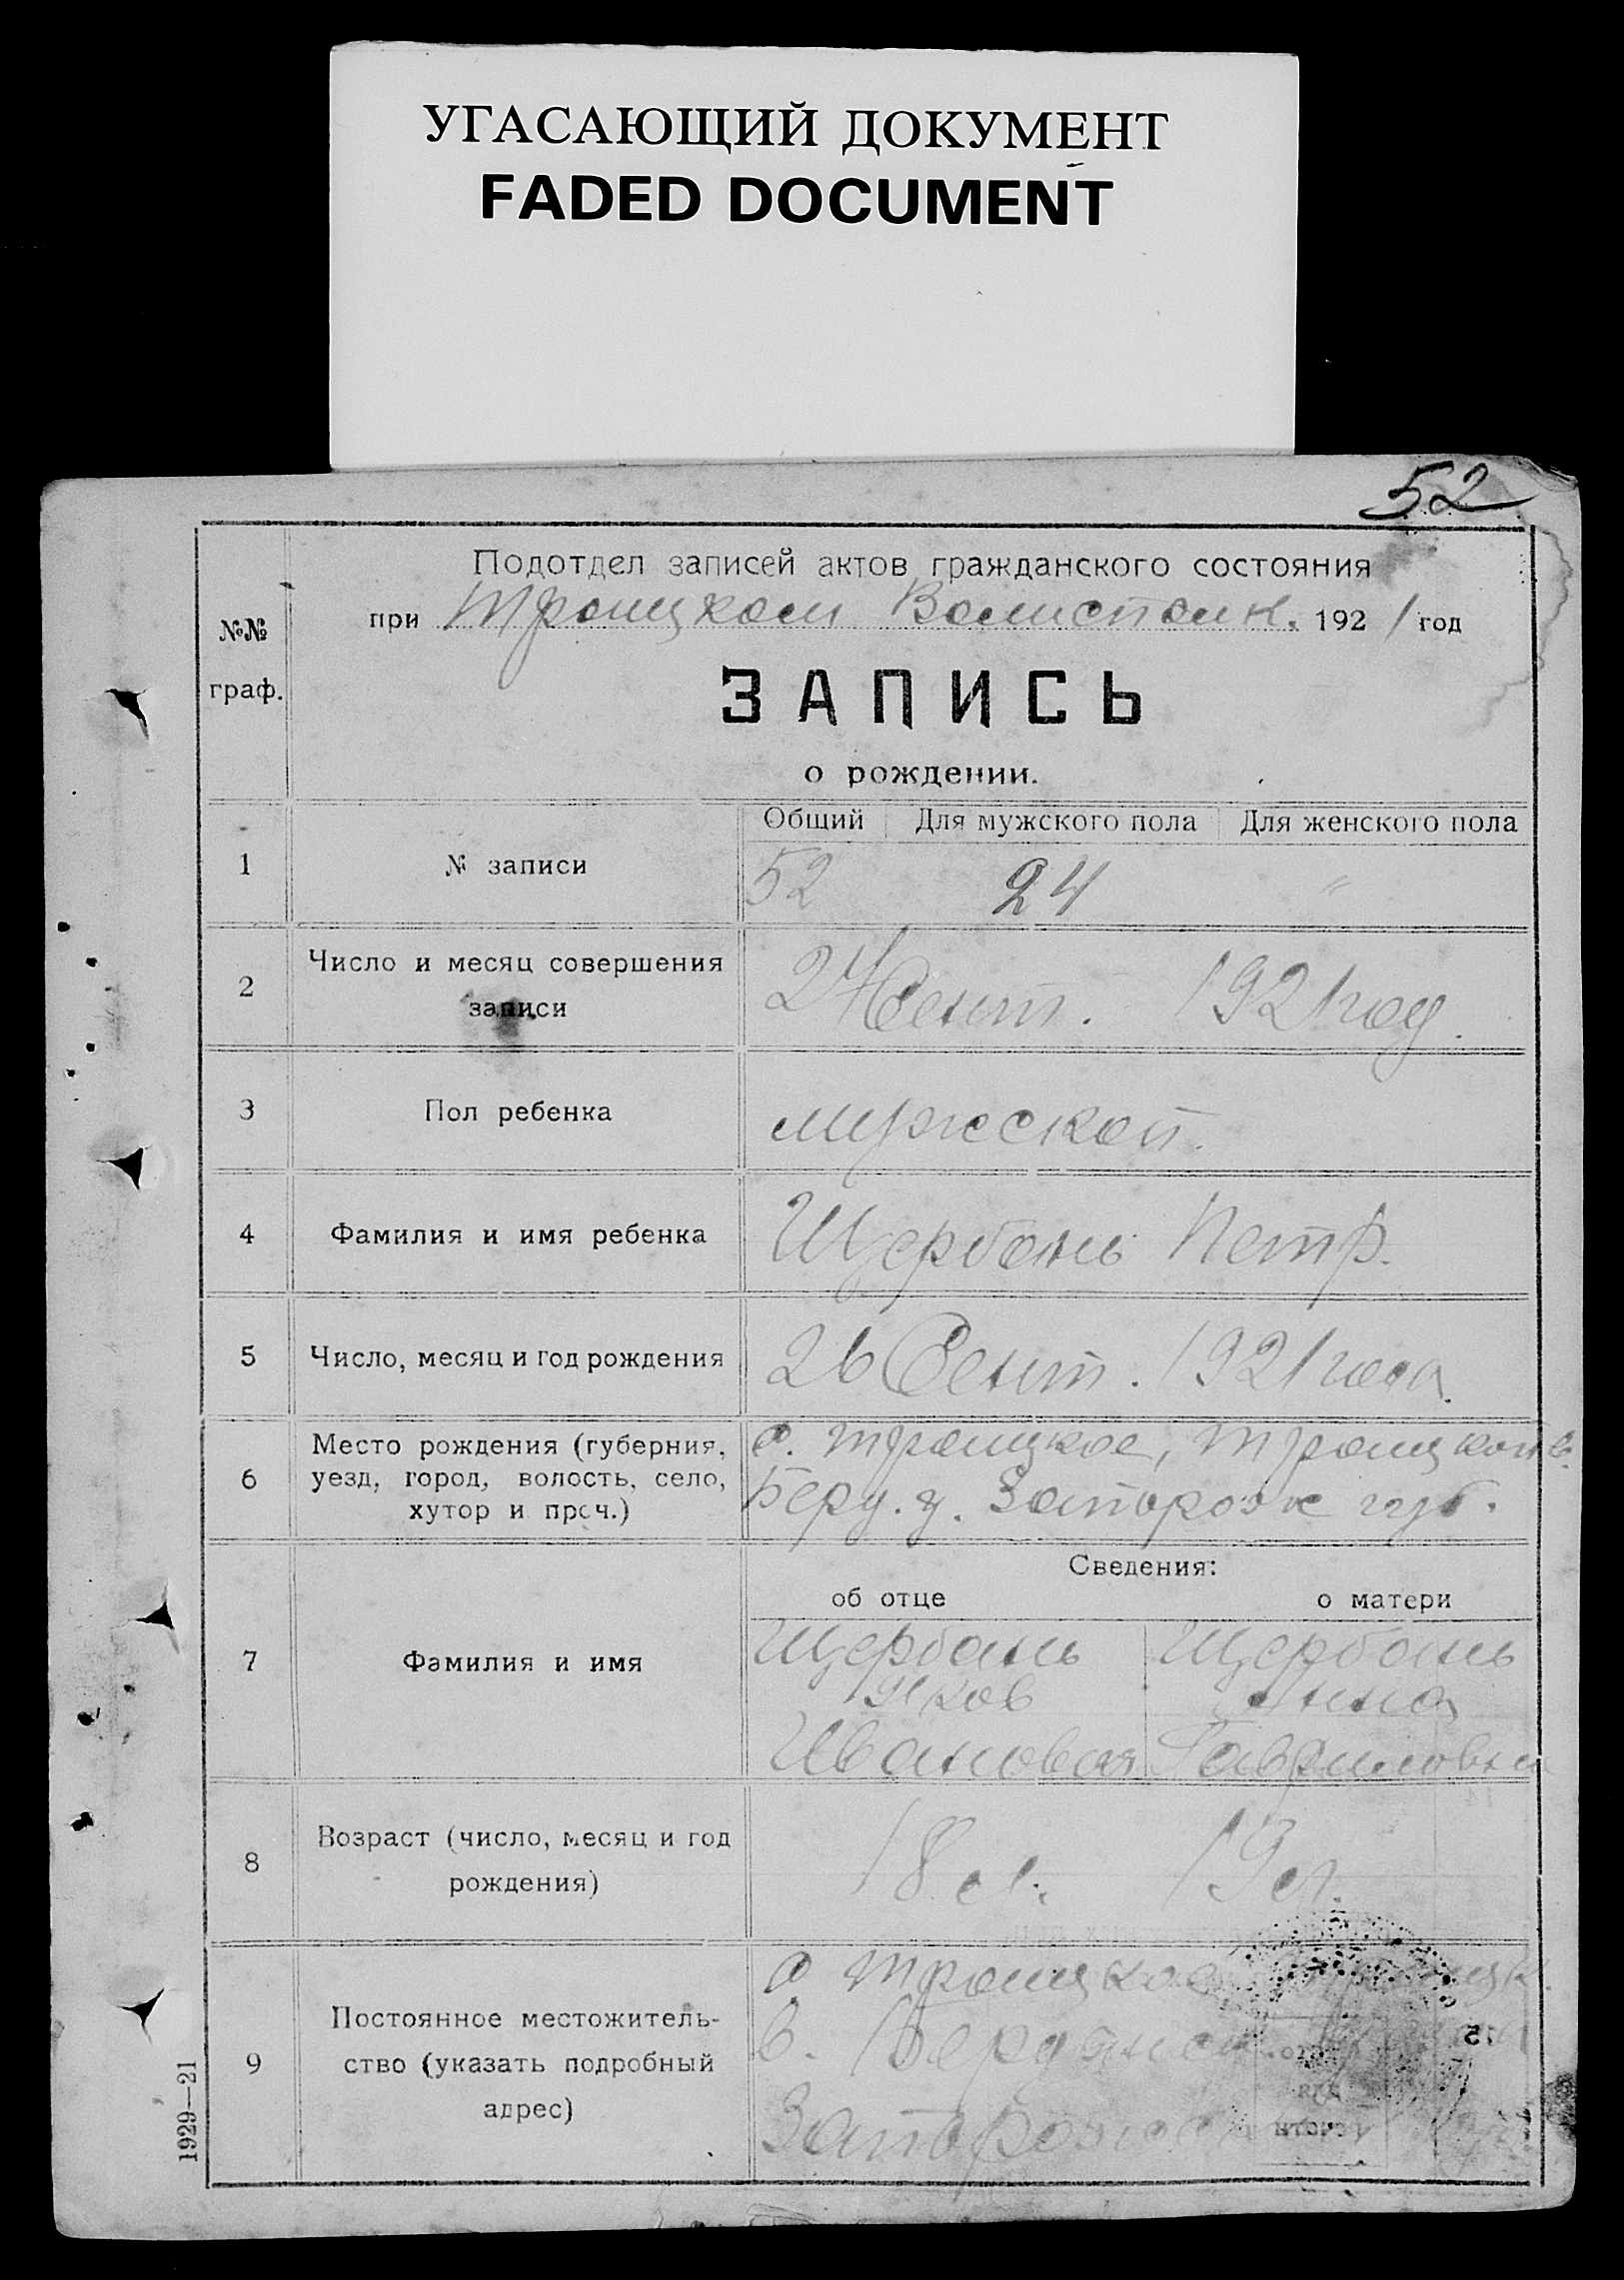 УГАСАЮЩИЙ ДОКУМЕНТ
FADED DOCUMENT
52
Подотдел записей актов гражданского состояния
при Троицком Волисполк. 1921 год
№№
граф.
ЗАПИСЬ
о рождении.
Общий Для мужского пола Для женского пола
1 № записи 52 24 "
2 Число и месяц совершения
записи
Сент. 1921 год.
3 Пол ребенка мужской.
4 Фамилия и имя ребенка Щербань Петр.
5 Число, месяц и год рождения 26 Сент. 1921 года.
6 Место рождения (губерния,
уезд, город, волость, село,
хутор и проч.)
с. Троицкое, Троицкой в.
Берд. у. Запорож губ.
Сведения:
об отце о матери
7 Фамилия и имя
Щербань Щербань
Яков Анна
Гавриловна
8 Возраст (число, месяц и год
рождения)
18 л. 19 л.
9 Постоянное местожитель-
ство (указать подробный
адрес)
с Троицкое
в. Бердянск
Запорожск
1929—21